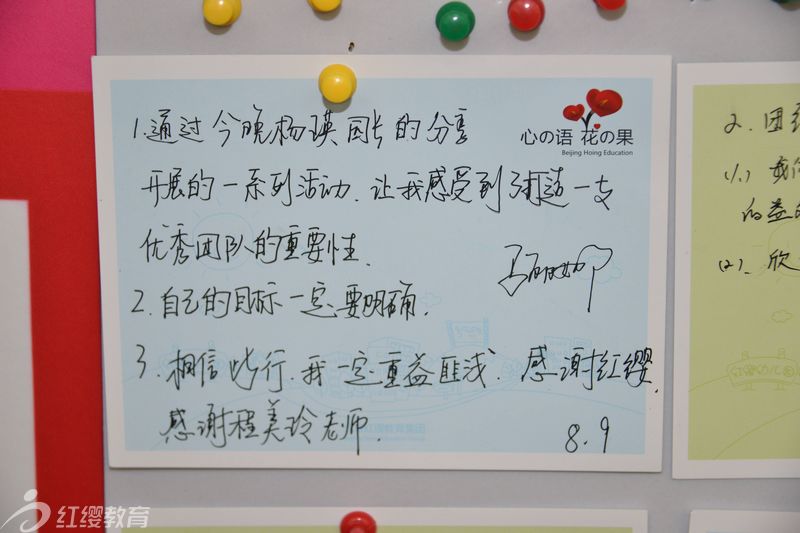 心の语 花の果
Beijing Hoing Education
1.通过今晚杨瑛园长的分享
开展的一系列活动,让我感受到打造一支
优秀团队的重要性.
2.自己的目标一定要明确.
3.相信此行.我一定重益匪浅.感谢红缨.
感谢程美玲老师.
8.9
2.团
(1.)我
的益
(2).欣
红缨教育集团
红缨教育